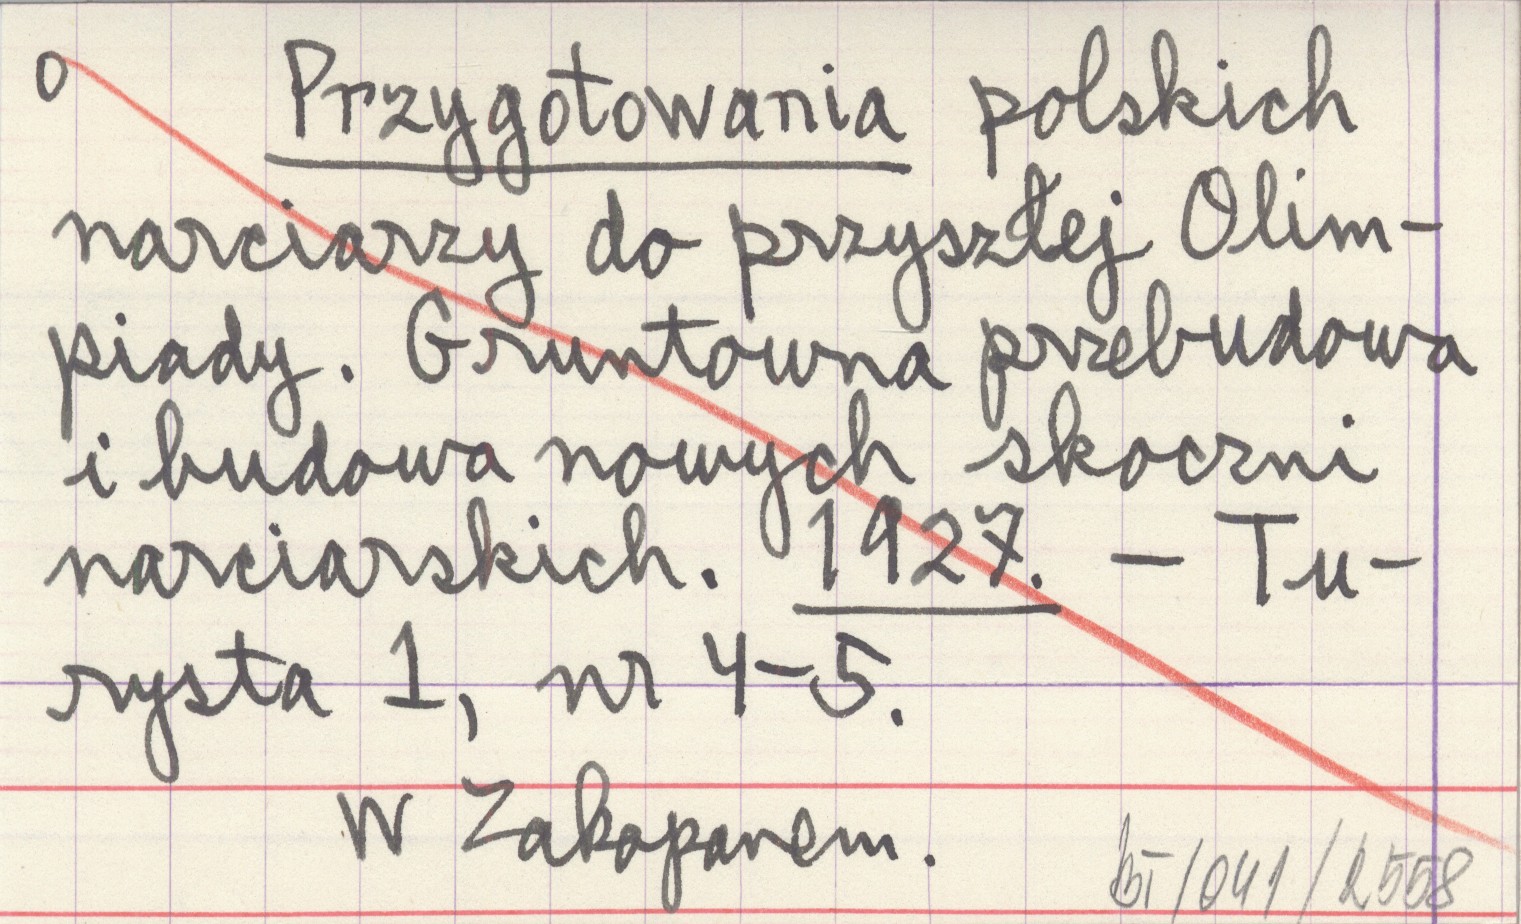 o Przygotowania polskich
narciarzy do przyszłej Olim-
piady. Gruntowna przebudowa
i budowa nowych skoczni
narciarskich. 1927. – Tu-
rysta 1, nr 4–5.
W Zakopanem.
/041/2558